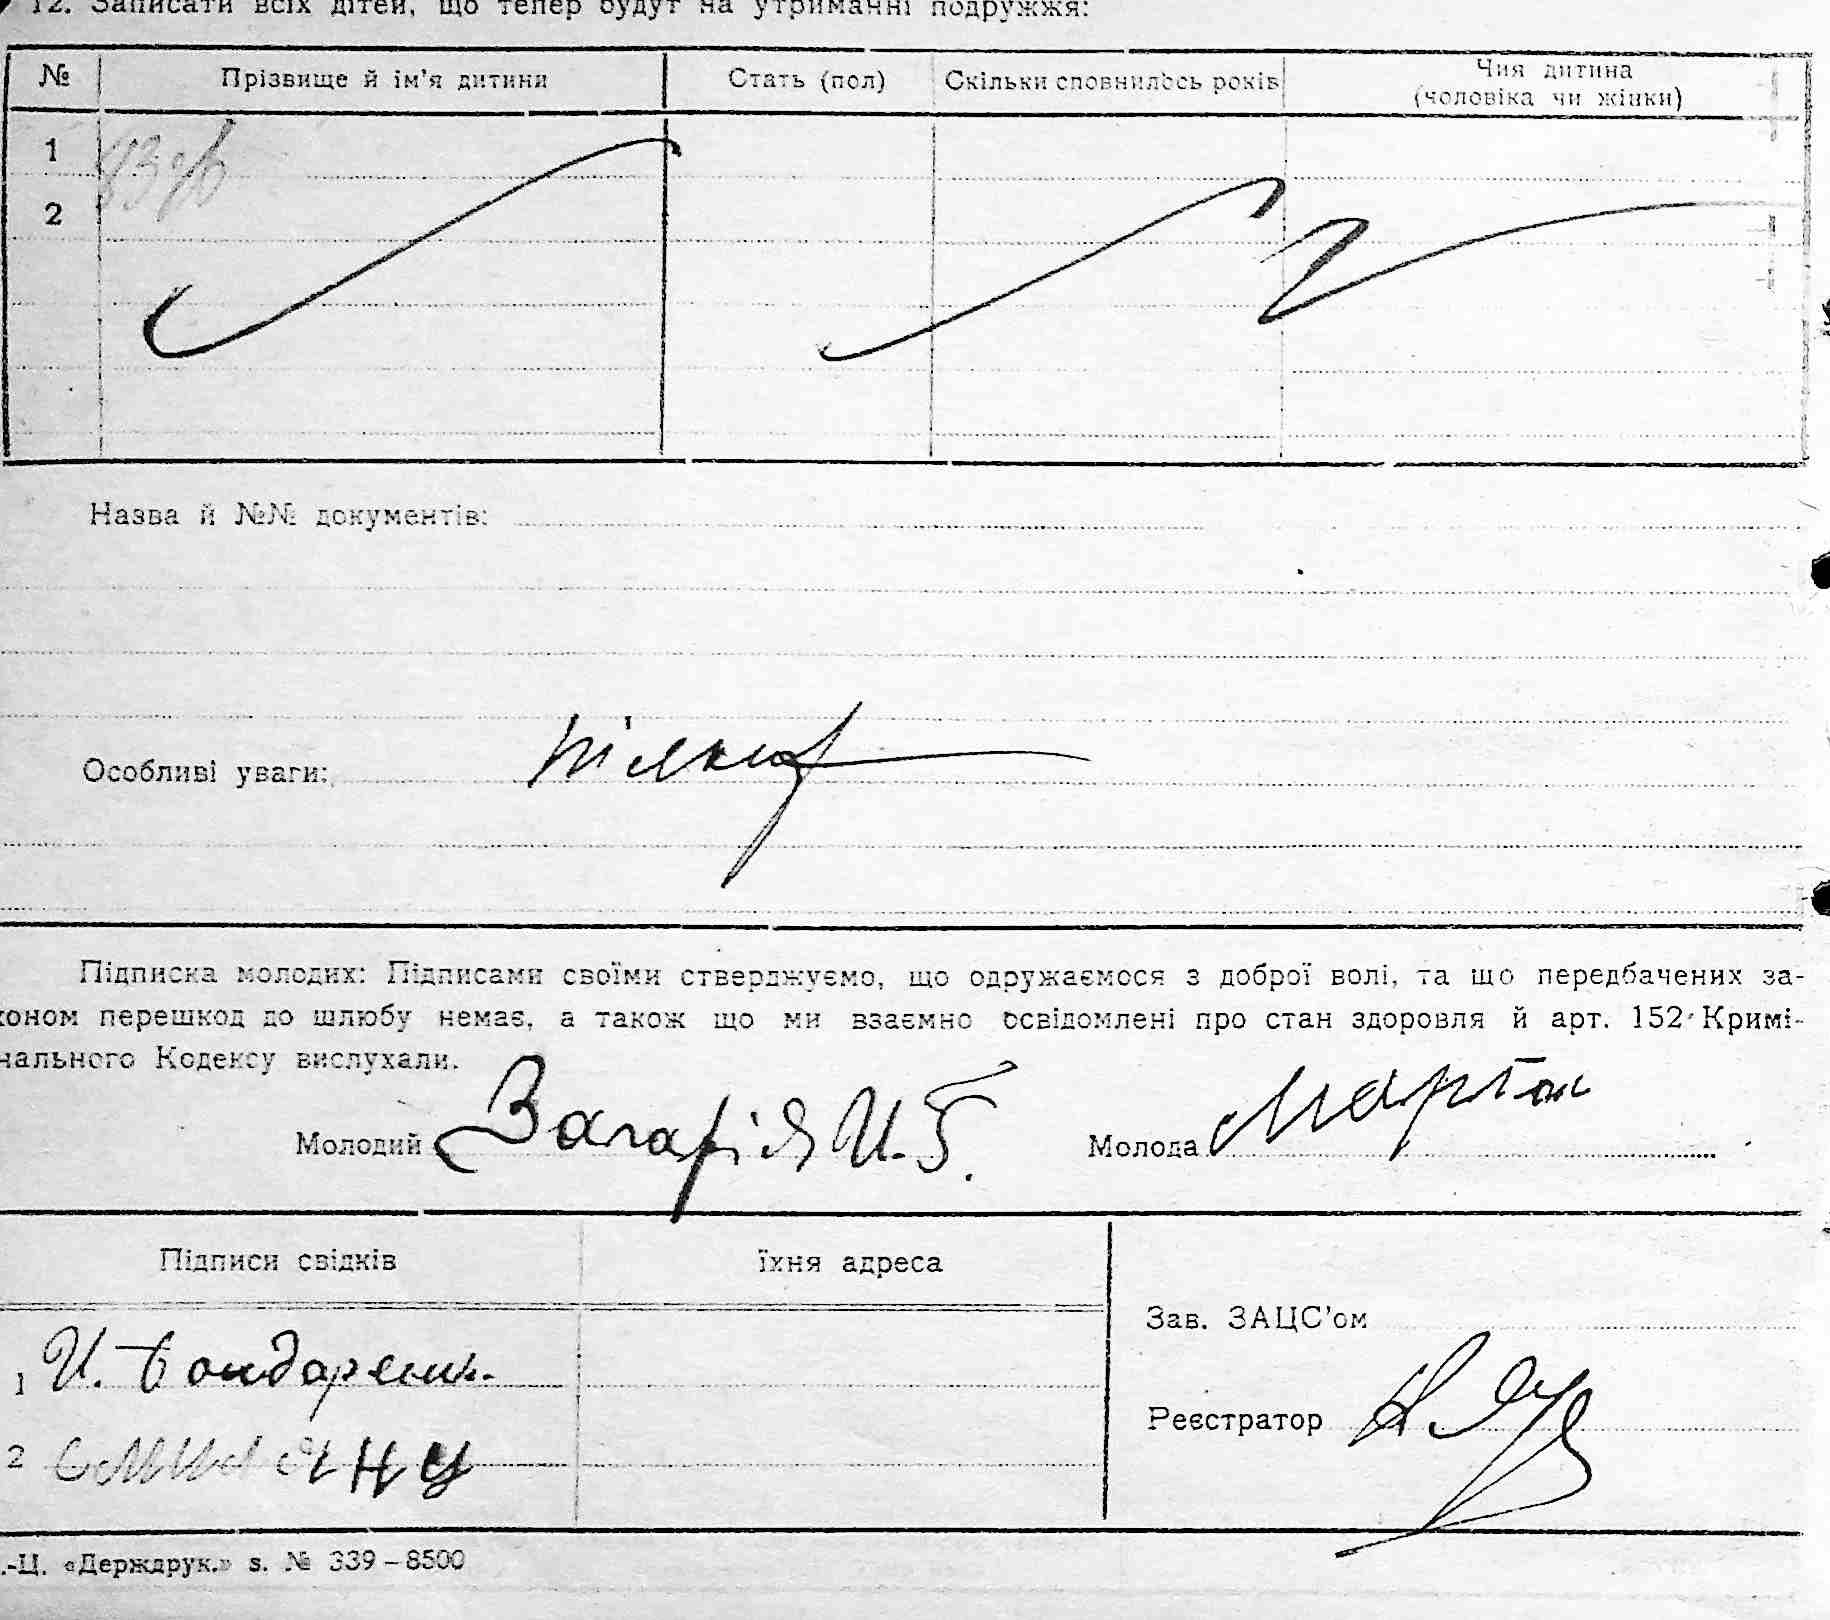 12. Записати всіх дітей, що тепер будут на утриманні подружжя:
№ Прізвище й ім'я дитини Стать (пол) Скільки сповнилось років Чия дитина (чоловіка чи жінки)
1
2
Назва й №№ документів:
Особливі уваги:
Підписка молодих: Підписами своїми стверджуємо, що одружаємося з доброї волі, та що передбачених за-
коном перешкод до шлюбу немає, а також що ми взаємно освідомлені про стан здоровля й арт. 152 Кримі-
нального Кодексу вислухали.
Молодий Загарія И. Б. Молода
Підписи свідків їхня адреса
Зав. ЗАЦС'ом
1 И. Бондаренк
Реєстратор
2
.-Ц. «Держдрук.» s. № 339 – 8500